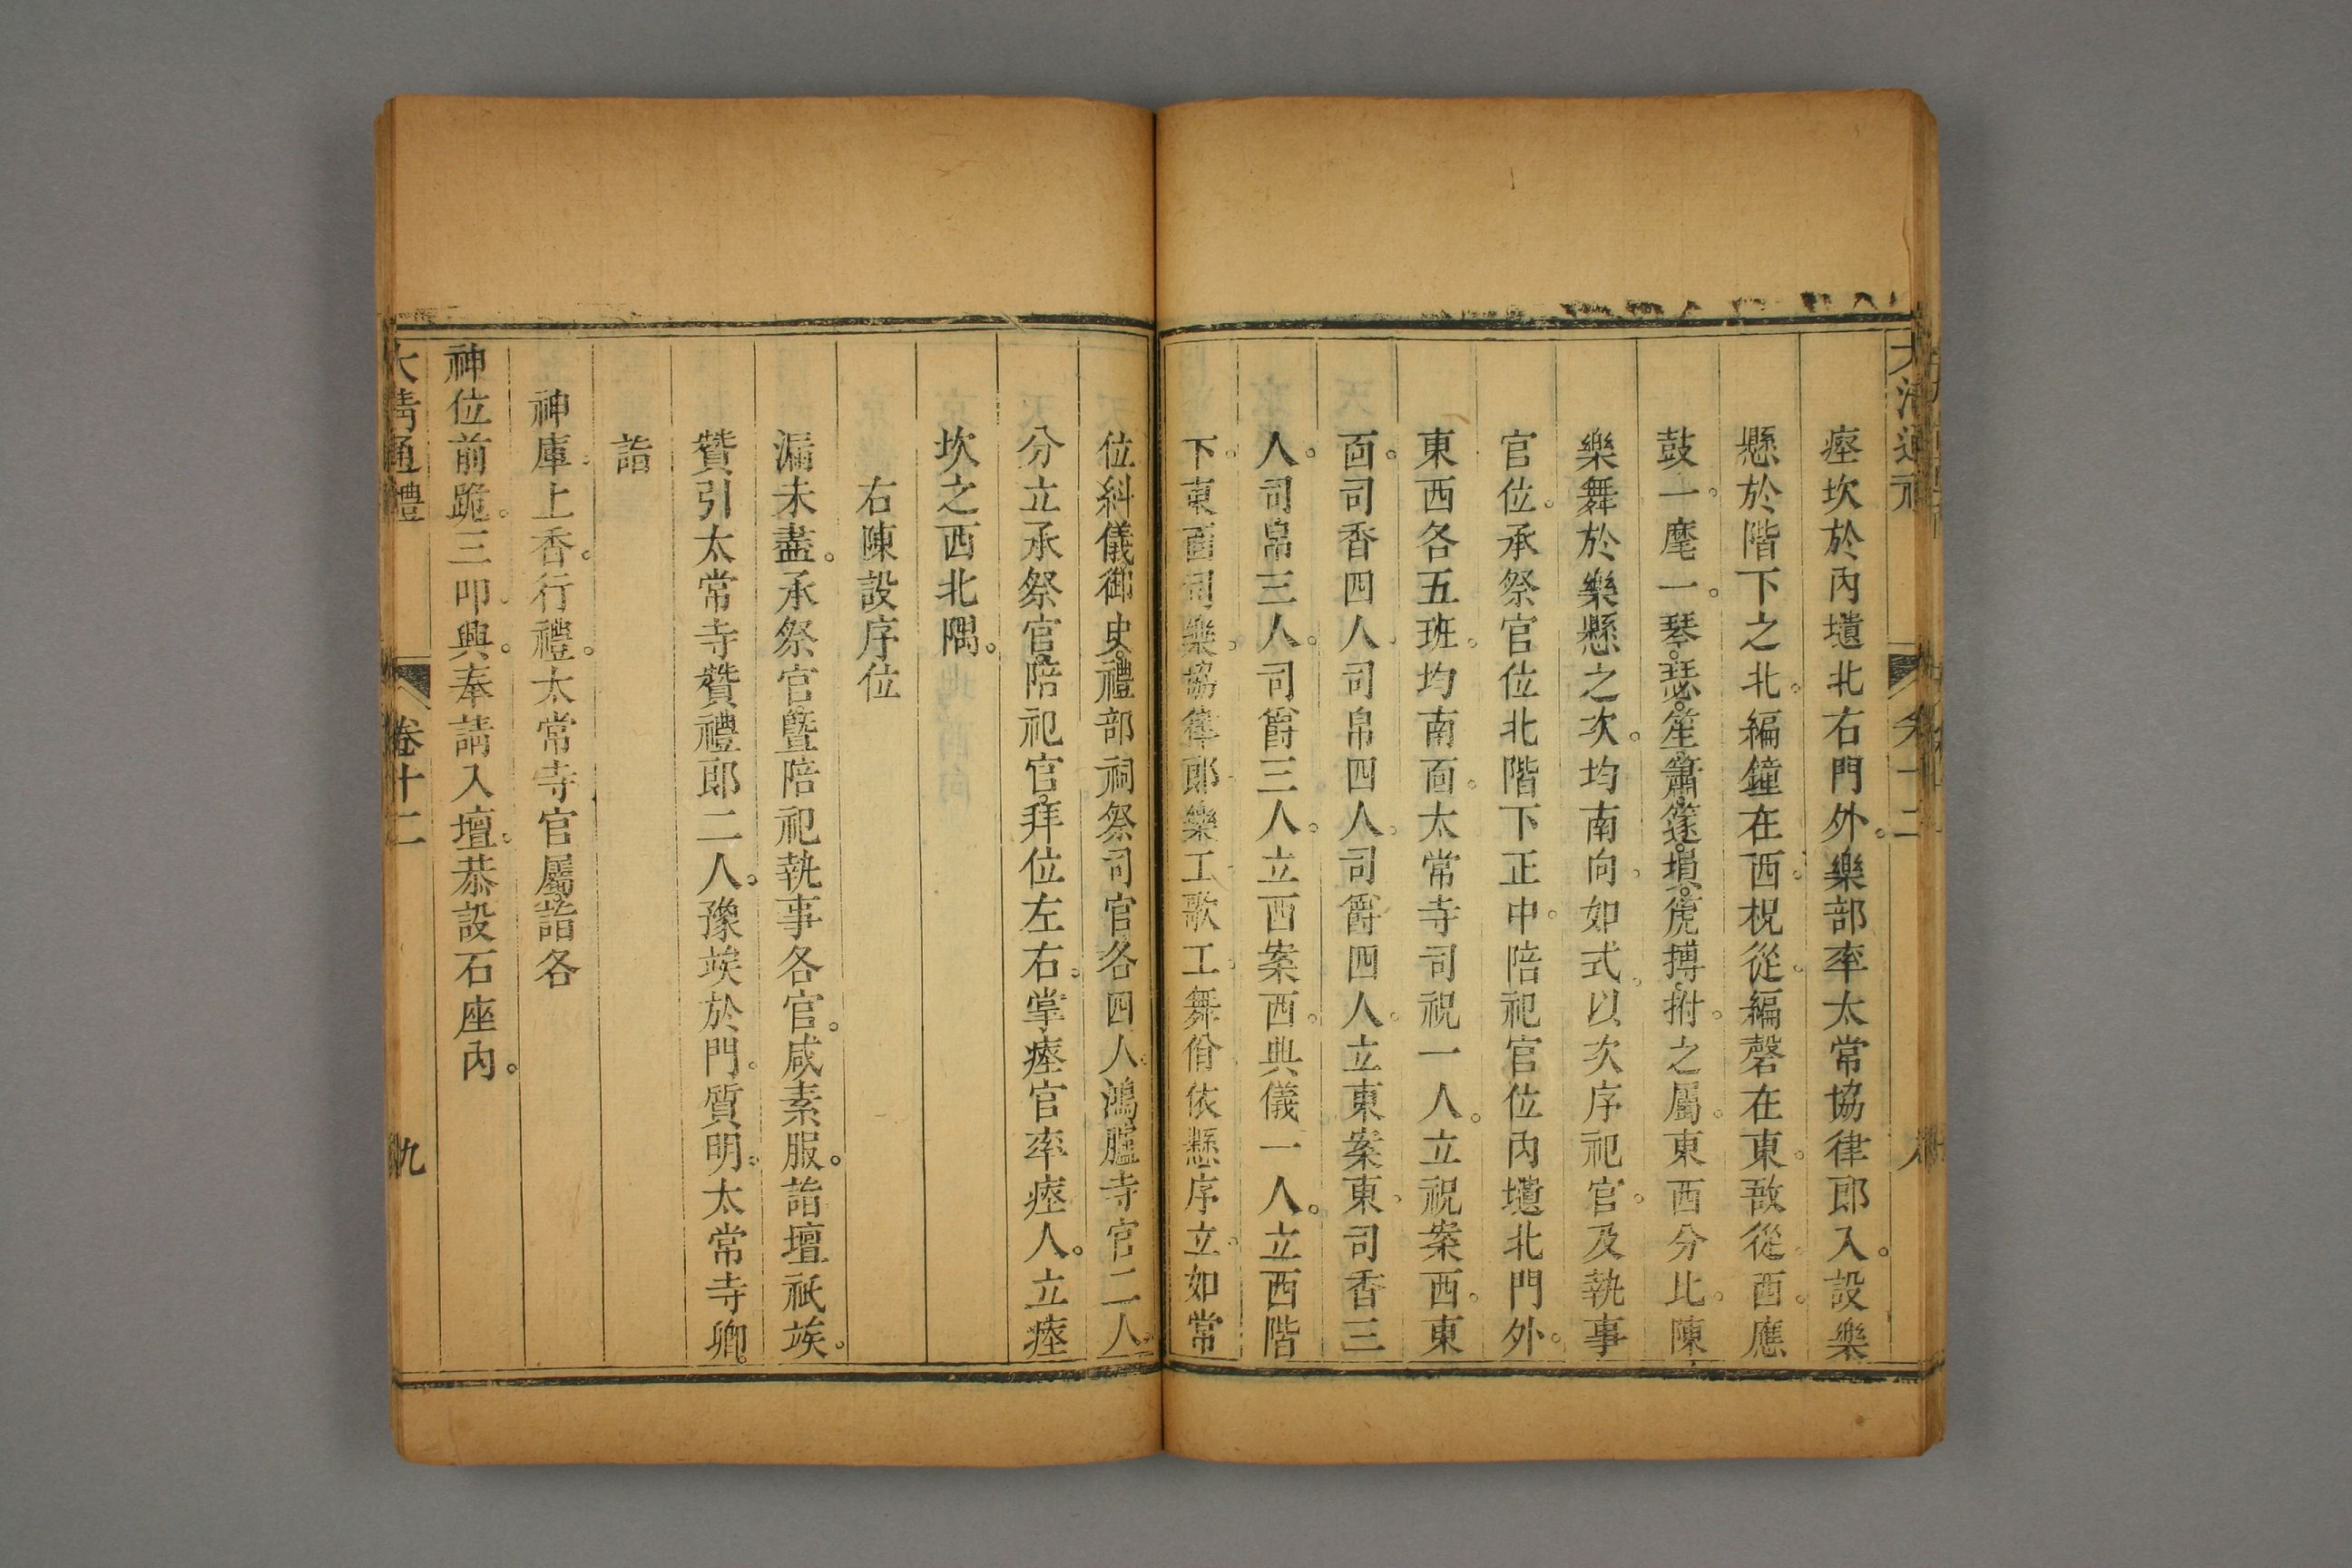 瘞坎於內壝北右門外。樂部率太常協律郎入。設樂
懸於階下之北。編鐘在西。柷從。編磬在東。敔從。西。應
鼓一。麾一。琴。瑟。笙。簫。篴。塤。篪。搏拊。之屬。東西分比。陳
樂舞於樂懸之次。均南向。如式。以次序祀官。及執事
官位。承祭官位北階下正中。陪祀官位內壝北門外。
東西各五班。均南面。太常寺司祝一人。立祝案西。東
面。司香四人。司帛四人。司爵四人。立東案東。司香三
人。司帛三人。司爵三人。立西案西。典儀一人。立西階
下。東面。司樂。協律郎。樂工。歌工。舞佾依懸序立。如常
位糾儀御史。禮部祠祭司官各四人。鴻臚寺官二人。
分立承祭官。陪祀官。拜位左右。掌瘞官率瘞人。立瘞
坎之西北隅。
右陳設序位
漏未盡。承祭官暨陪祀執事各官。咸素服。詣壇祇竢。
贊引太常寺贊禮郎二人。豫竢於門。質明。太常寺卿。
詣
神庫。上香。行禮。太常寺官屬。詣各
神位前跪。三叩。興。奉請入壇。恭設石座內。
大清通禮 卷十二 九